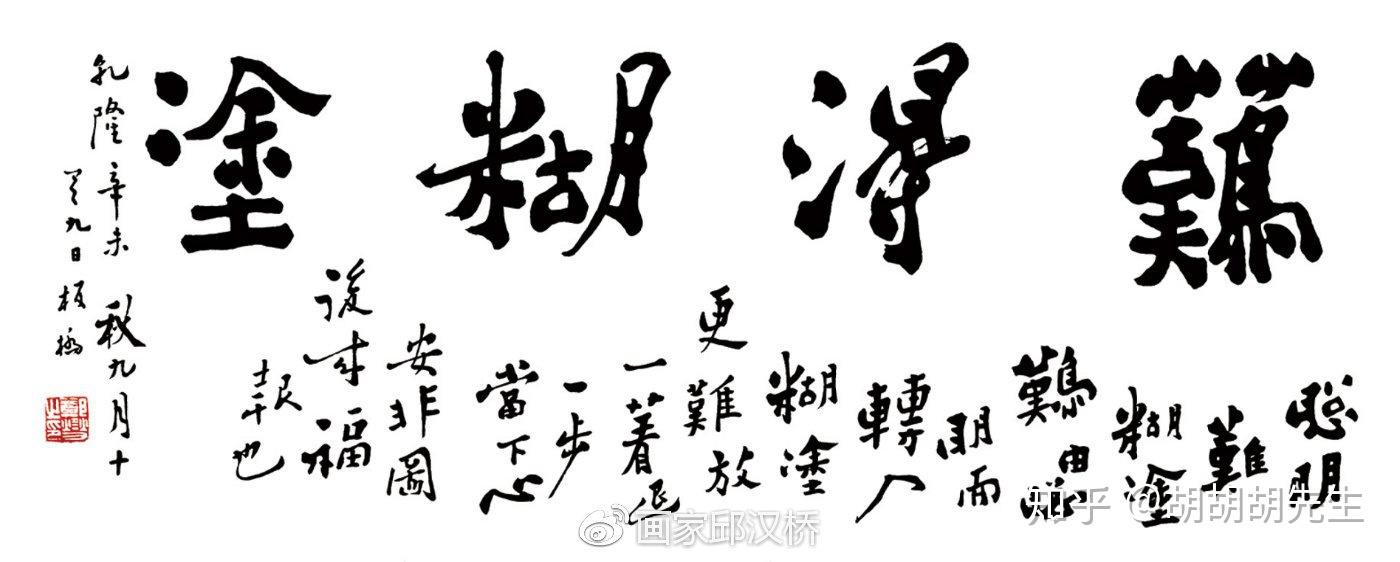 難得糊塗
聰明
難
糊塗
難由聰
明而
轉入
糊塗
更難放
一著退
一步
當下心
安非圖
後来福
報也
乾隆辛未秋九月十
有九日板橋
鄭燮之印
知乎 @胡胡胡先生
画家邱汉桥